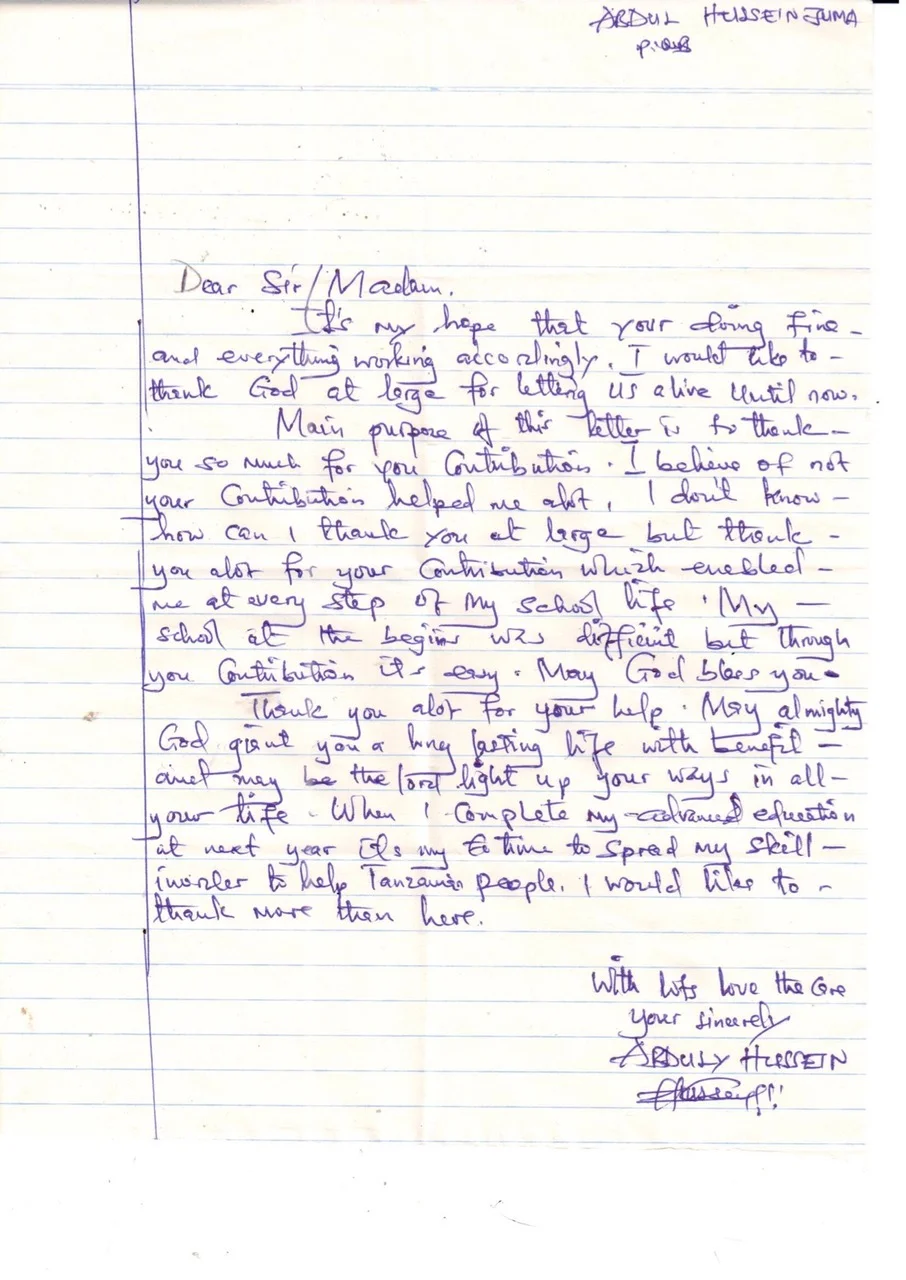 ABDUL HUSSEIN JUMA
Dear Sir/Madam.
It's my hope that your doing fine -
and everything working accordingly. I would like to -
thank God at large for letting us alive until now.
Main purpose of this letter is to thank -
you so much for you Contribution. I believe of not
your Contribution helped me alot, I don't know -
how can I thank you at large but thank -
you alot for your Contribution which enabled -
me at every step of my school life. My -
school at the begins was difficient but through
you Contribution its easy. May God bless you.
Thank you alot for your help. May almighty
God grant you a long lasting life with benefit -
and may be the lord light up your ways in all -
your life. When I complete my advanced education
at next year its my time to spread my skill -
inorder to help Tanzania people. I would like to -
thank more than here.
With lots love the
your sincerely
ABDULY HUSSEIN